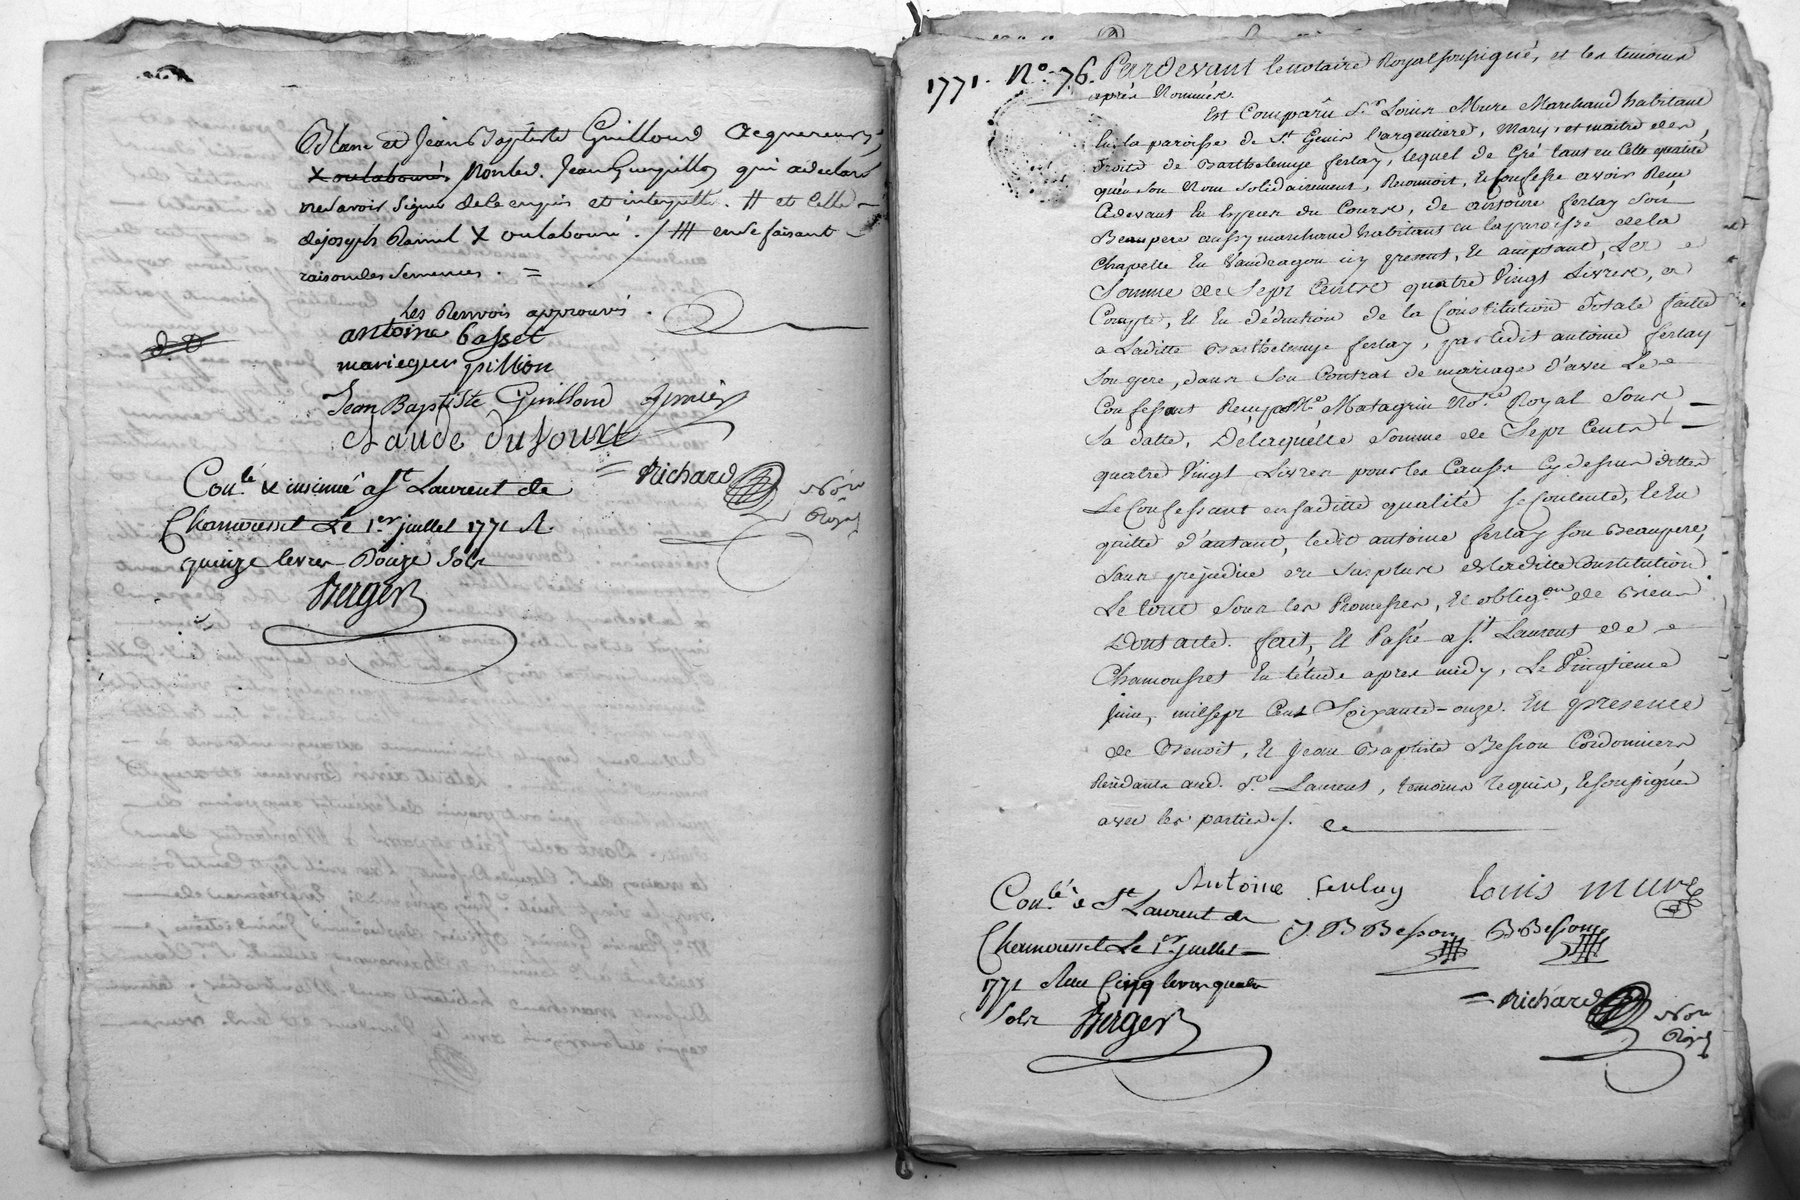 Blanc et Jean Baptiste Guilloud acquereurs,
X ou labourés non led. Jean Guerpillon qui a declaré
ne savoir signer de ce enquis et interpellé. # et celle
de joseph X ou labouré. / ### en se faisant
raison des semences. =
Les Renvois approuvés.
antoine basset
marieguerpillion
Jean Baptiste Guilloud
Claude dufour
= Richard
Nore
Royal
Conlé & insinué a St Laurent de
Chamousset Le 1er juillet 1771 R.
quinze livres Douze Sols
Berger
1771. No. 76. Pardevant le notaire Royal soussigné, et les temoins
après Nommés.
Est Comparu Sr. Louis Mure Marchand habitant
En la paroisse de St Genis l'argentiere, Mary, et maitre des
Droits de Barthelemye ferlay, lequel de Gré tant en Cette qualité
qu'en son Nom solidairement, Reconnoit, & Confesse avoir Reçu
Cydevant En Espèces du Cours, de antoine ferlay son
Beaupere aussy marchand habitant en la paroisse de la
Chapelle En Vaudragon icy present, & acceptant, La
Somme de Sept Cents quatre Vingt Livres, a
Compte, & En déduction de la Constitution Dotale faitte
a Laditte Barthelemye ferlay, par ledit antoine ferlay
son pere, dans son Contrat de mariage d'avec Le
Confessant Reçu par Me Matagrin Nore. Royal sous
sa datte, De laquelle somme de Sept Cents
quatre Vingt Livres pour les Causes Cy dessus dittes
Le Confessant en saditte qualité se Contente, & En
quitte d'autant, ledit antoine ferlay son Beaupere,
sans prejudice du surplus de laditte Constitution
Le tout sous les Promesses, & obligon. de Biens
Dont acte. fait, & Passé a St Laurent de
Chamousset En l'étude après midy, Le Vingtieme
Juin, mil sept Cent Soixante-onze. En presence
de Benoit, & Jean Baptiste Besson Cordonniers
Residants aud. St. Laurent, temoins requis, & soussignés
avec les parties /.
Antoine ferlay louis mure
J. B Besson B Besson
= Richard
Nore
Royal
Conlé à St Laurent de
Chamousset Le 1er juillet
1771 Reçu Cinq livres quatre
Sols Berger